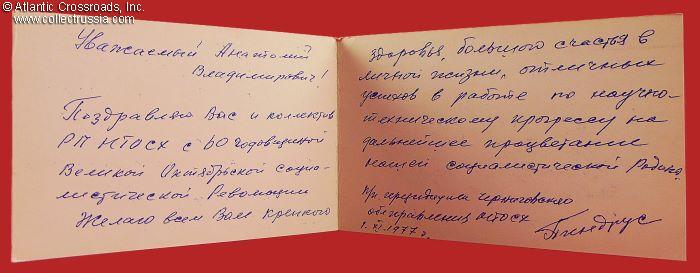 © Atlantic Crossroads, Inc.
www.collectrussia.com
Уважаемый Анатолий
Владимирович!
Поздравляю Вас и коллектив
РП НТОСХ с 60 годовщиной
Великой Октябрьской социа-
листической Революции
Желаю всем Вам крепкого
здоровья, большого счастья в
личной жизни, отличных
успехов в работе по научно-
техническому прогрессу на
дальнейшее процветание
нашей социалистической Родины.
президиума Черниговского
облправления НТОСХ
1. XI - 1977 г.